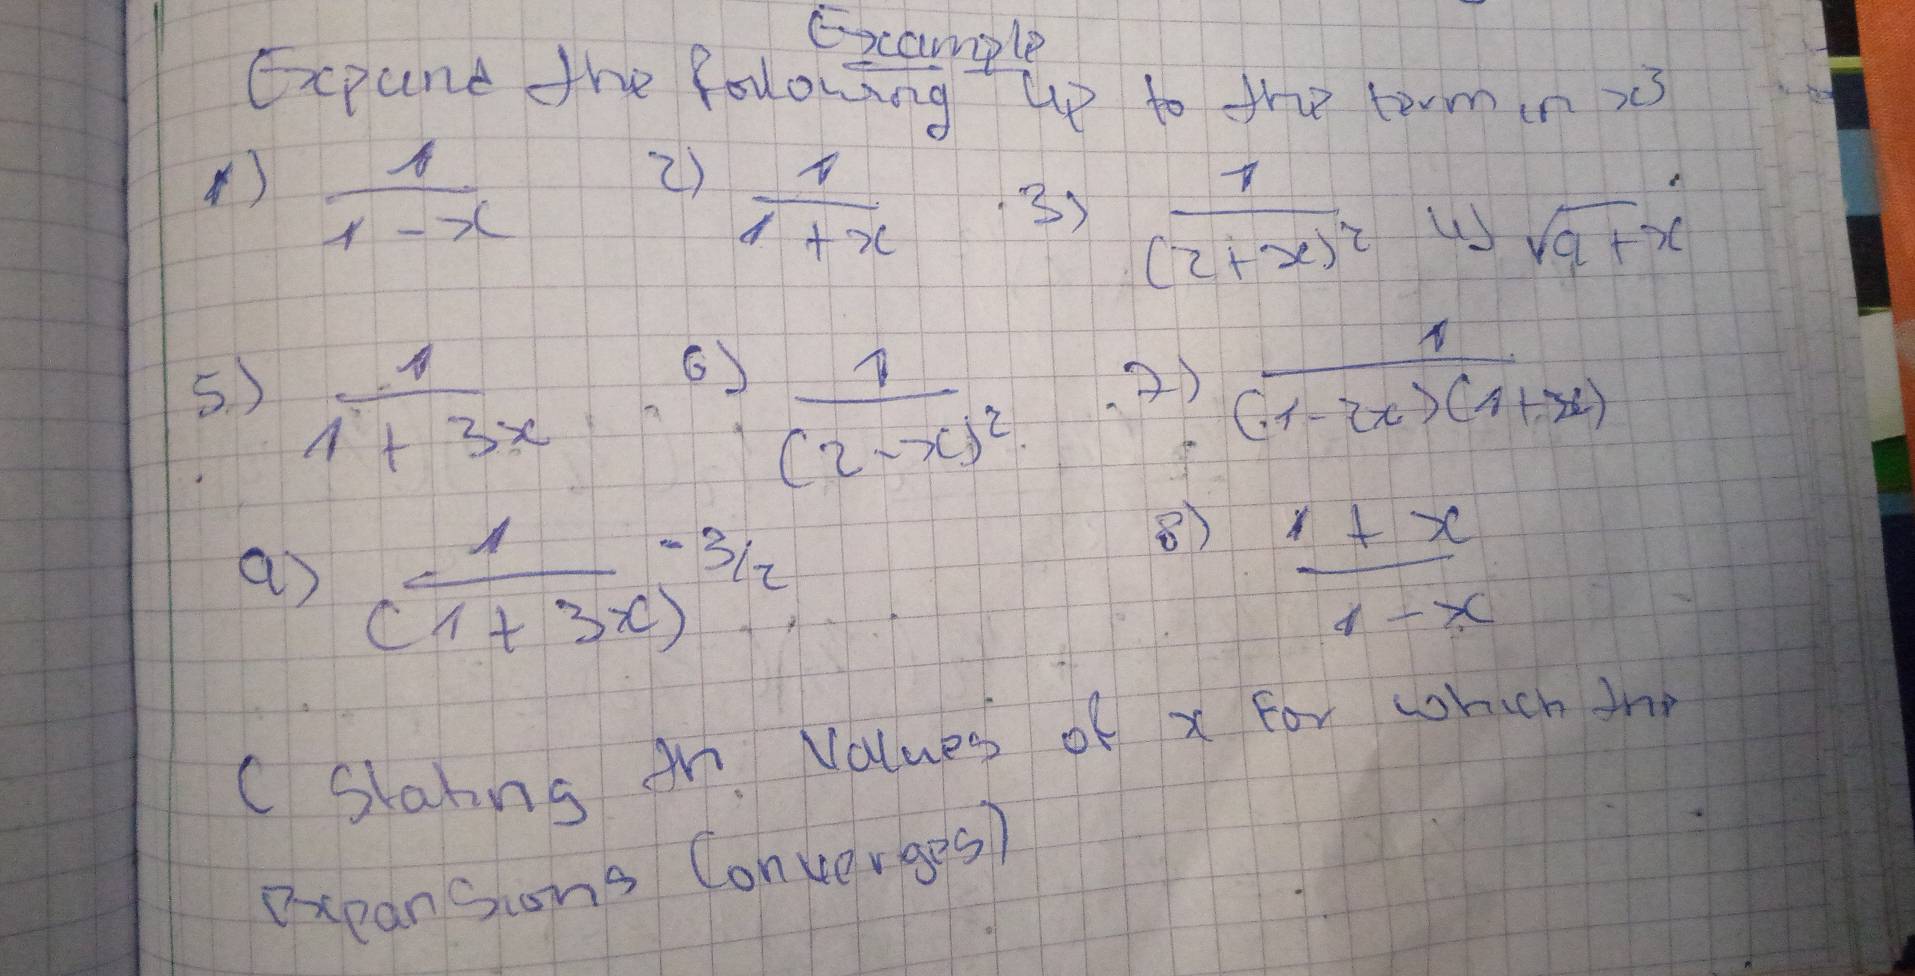 Example
Expand the following up to the term in x³
1) 1/(1-x) 2) 1/(1+x) 3) 1/(2+x)² 4) √9+x
5) 1/(1+3x) 6) 1/(2-x)² 7) 1/((1-2x)(1+x))
9) 1/(1+3x)^(-3/2) 8) (1+x)/(1-x)
( Stating th values of x For which the
expansions Converges)